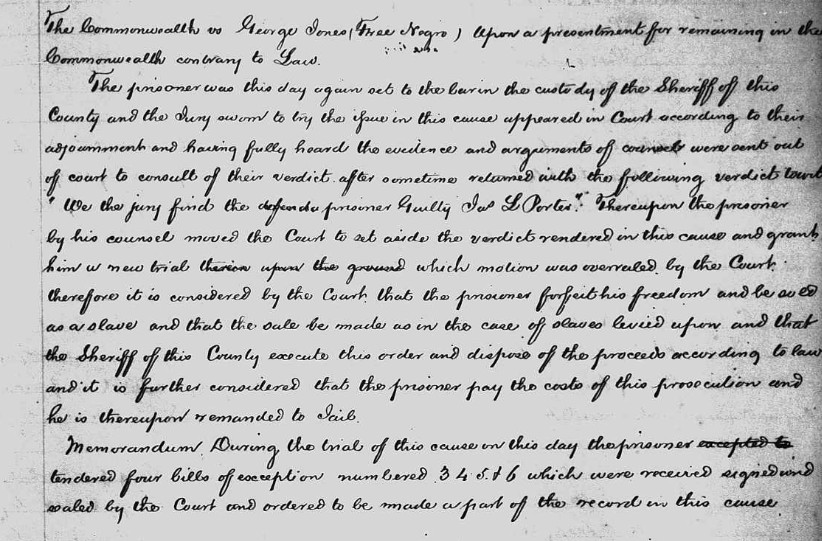 The Commonwealth vs George Jones (Free Negro) Upon a presentment for remaining in the
Commonwealth contrary to Law.
The prisoner was this day again set to the bar in the custody of the Sheriff of this
County and the Jury sworn to try the issue in this cause appeared in Court according to their
adjournment and having fully heard the evidence and arguments of counsel were sent out
of court to consult of their verdict after sometime returned with the following verdict towit
"We the jury find the defenda prisoner Guilty Jas L Porter". Thereupon the prisoner
by his counsel moved the Court to set aside the verdict rendered in this cause and grant
him a new trial therein upon the ground which motion was overruled by the Court.
therefore it is considered by the Court that the prisoner forfeit his freedom and be sold
as a slave and that the sale be made as in the case of slaves levied upon and that
the Sheriff of this County execute this order and dispose of the proceeds according to law
and it is further considered that the prisoner pay the costs of this prosecution and
he is thereupon remanded to Jail.
Memorandum. During the trial of this cause on this day the prisoner excepted to
tendered four bills of exception numbered 3 4 5 & 6 which were received signed and
sealed by the Court and ordered to be made a part of the record in this cause